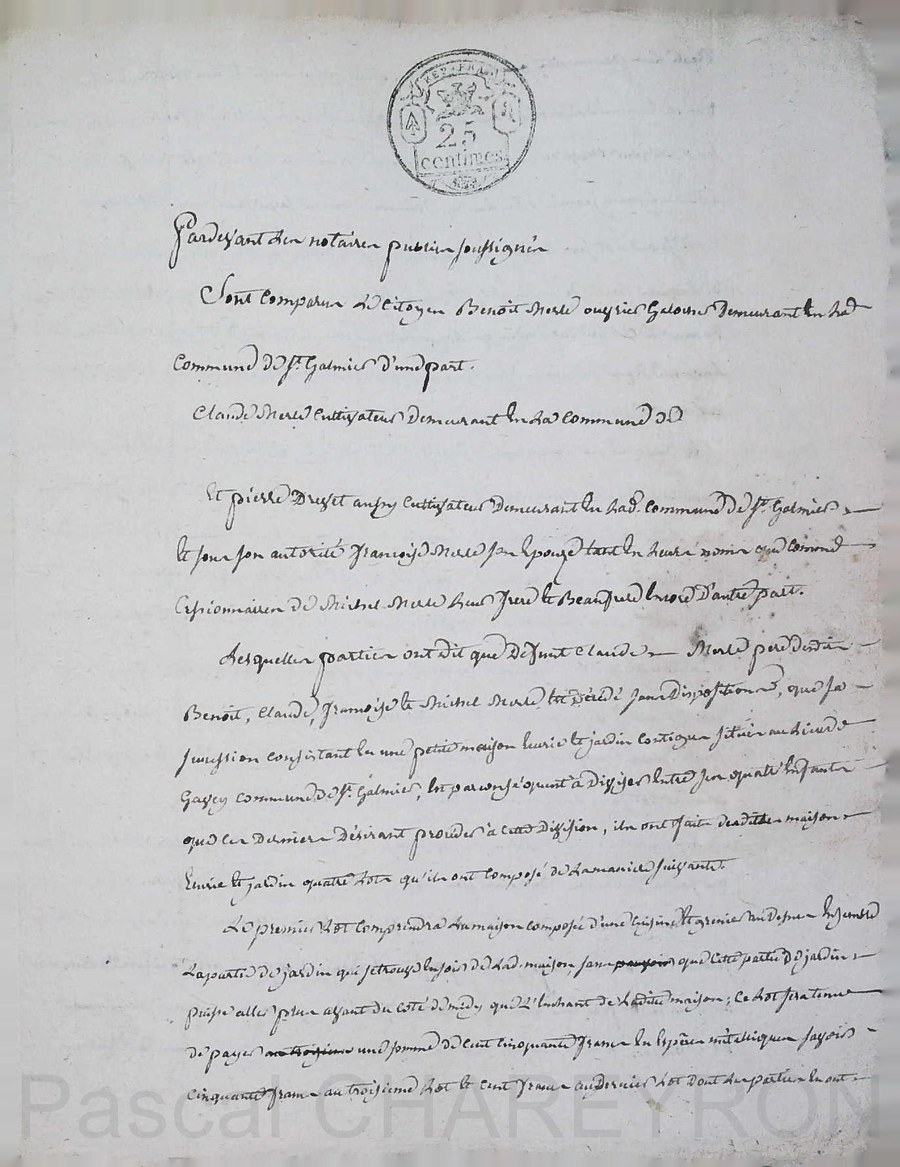 REP. FRA.
25
centimes
Pardevant les notaires publics soussignés
Sont comparus le citoyen Benoit Merle ouvrier demeurant en lad.
commune de St. Galmier d'une part.
Claude Merle cultivateur demeurant en la commune de
Et pierre Drevet aussy cultivateur demeurant en lad. commune de St. Galmier
et sous son autorité françoise Merle son epouze tant en leurs noms que comme
cessionnaires de Michel Merle leur frere et beaufrere encore d'autre part.
Lesquelles parties ont dit que defunt Claude Merle pere desdits
Benoit, Claude, françoise et Michel Merle est décédé sans dispositions, que sa
succession consistant en une petite maison ecurie et jardin contigus situés au lieu de
commune de St. Galmier, est par conséquent à diviser entre ses quatre enfants
que ces derniers désirant procéder à cette division, ils ont fait desdits maison
ecurie et jardin quatre lots qu'ils ont composé de la maniere suivante.
Le premier lot comprendra la maison composée d'une cuisine et grenier au dessus ensemble
la partie de jardin qui se trouve en soir de lad. maison, sans que cette partie de jardin
puisse aller plus avant du coté de midy que l'enchant de ladite maison; ce lot sera tenu
de payer au troisieme une somme de cent cinquante francs en espèces métalliques savoir
cinquante francs au troisieme lot et cent francs au dernier lot dont les parties en ont
Pascal CHAREYRON